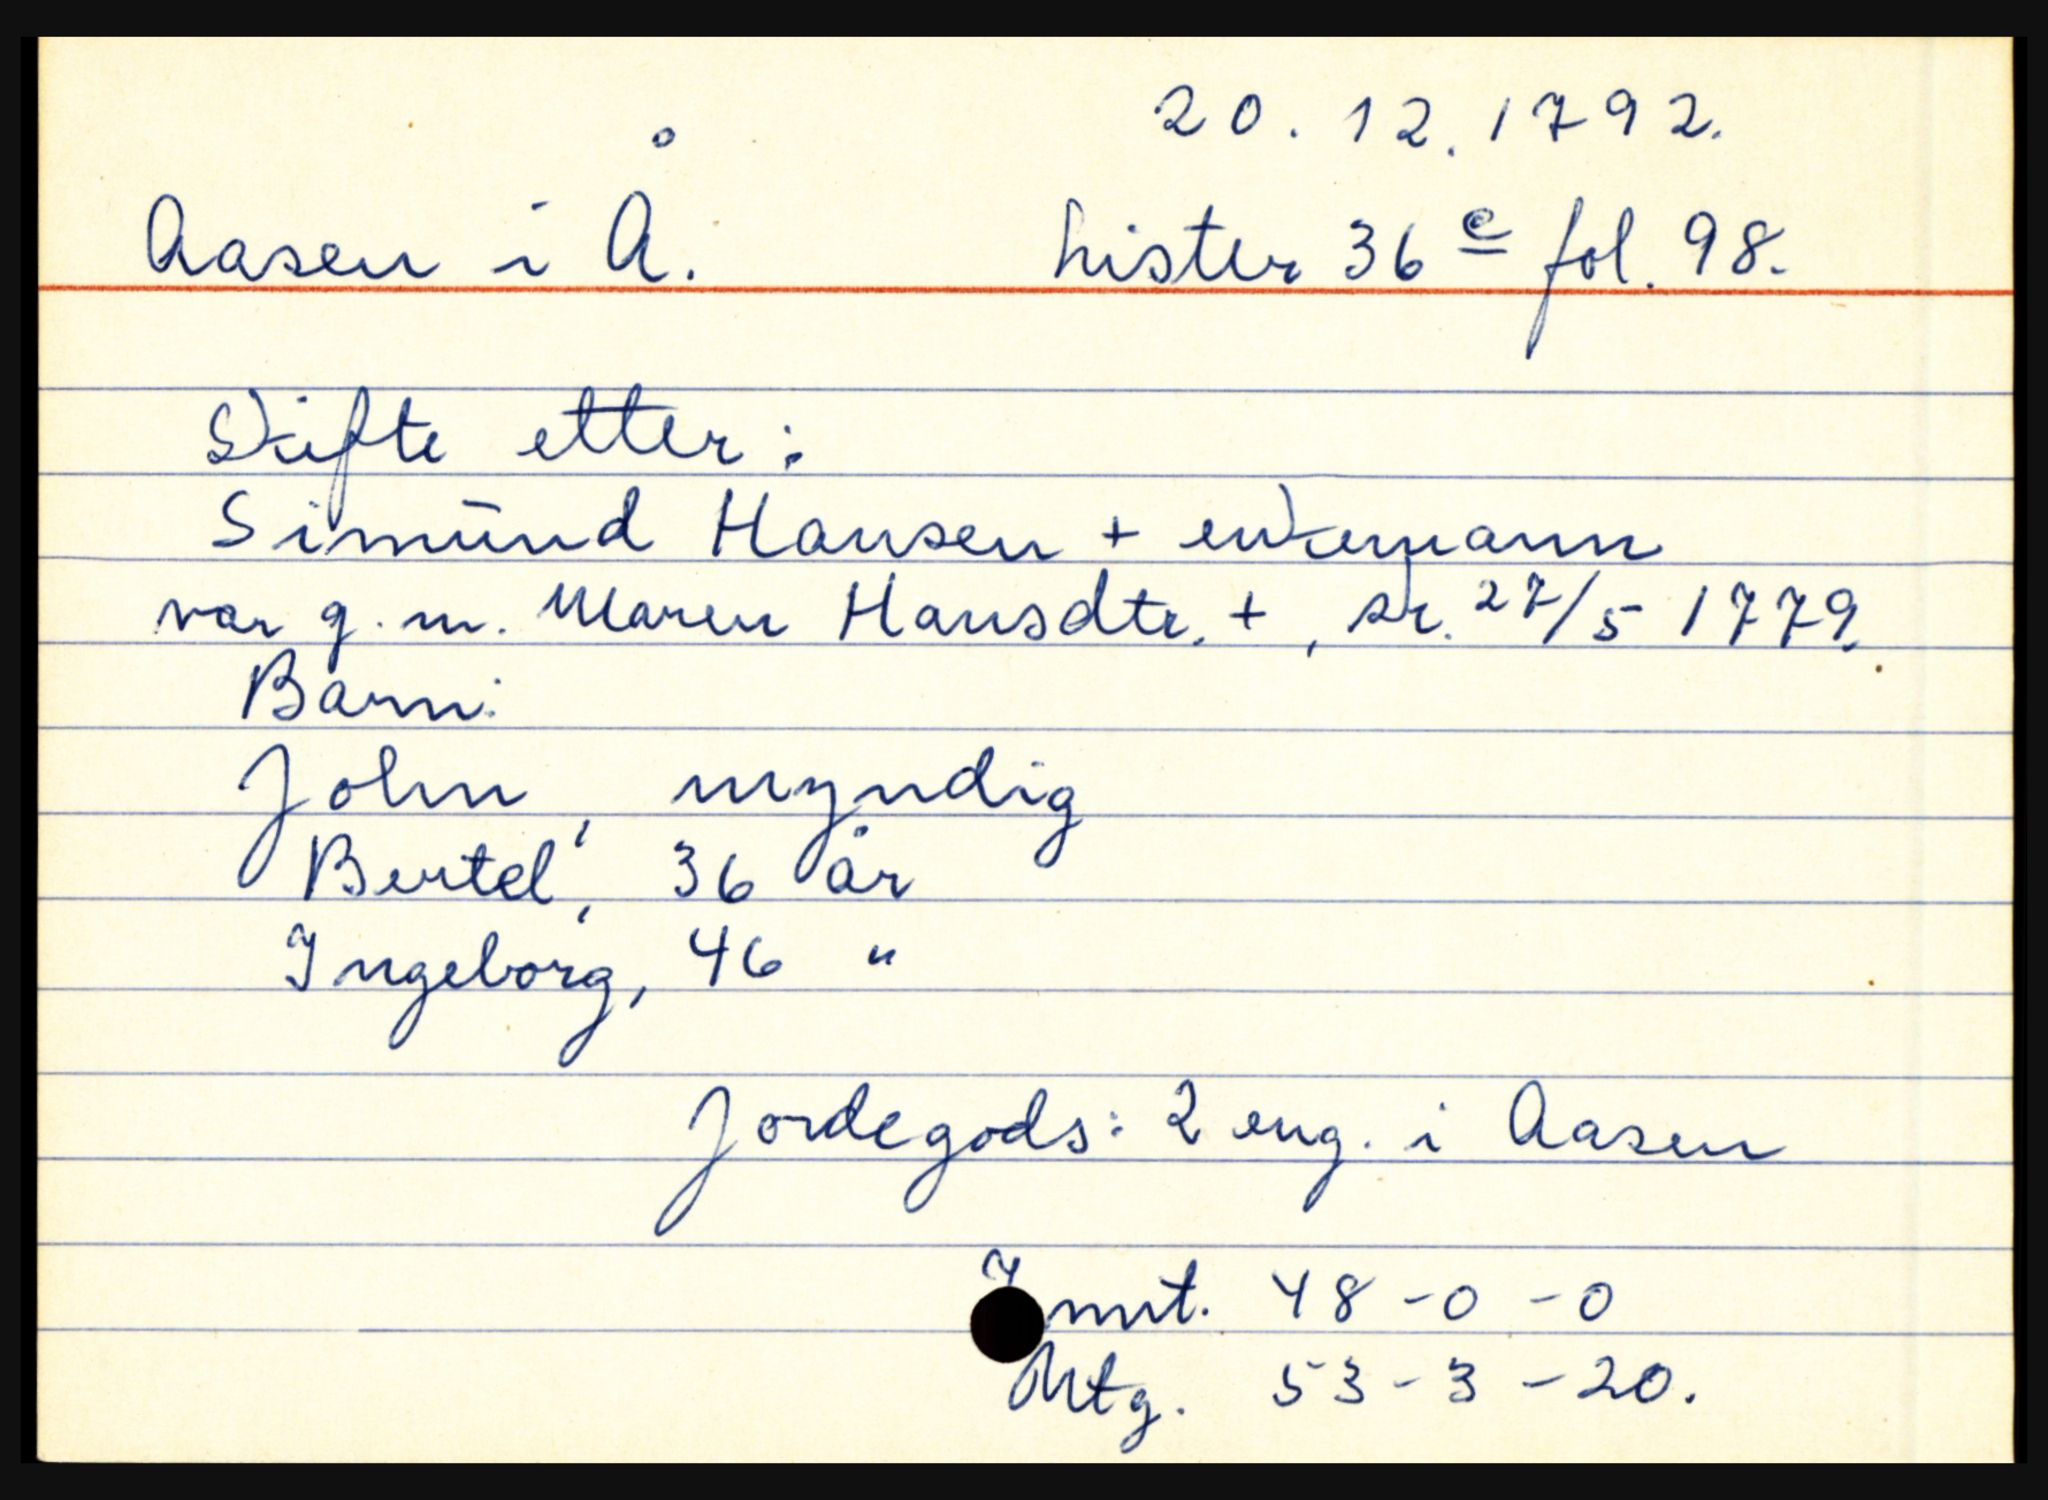 20.12.1792.
Aasen i Å. Lister 36 c fol. 98.
Skifte etter:
Simund Hansen + enkemann
var g.m. Maren Hansdtr. +, sk. 27/5 1779.
Barn:
John, myndig
Bertel, 36 år
Ingeborg, 46 "
Jordegods: 2 eng. i Aasen
48-0-0
53-3-20.